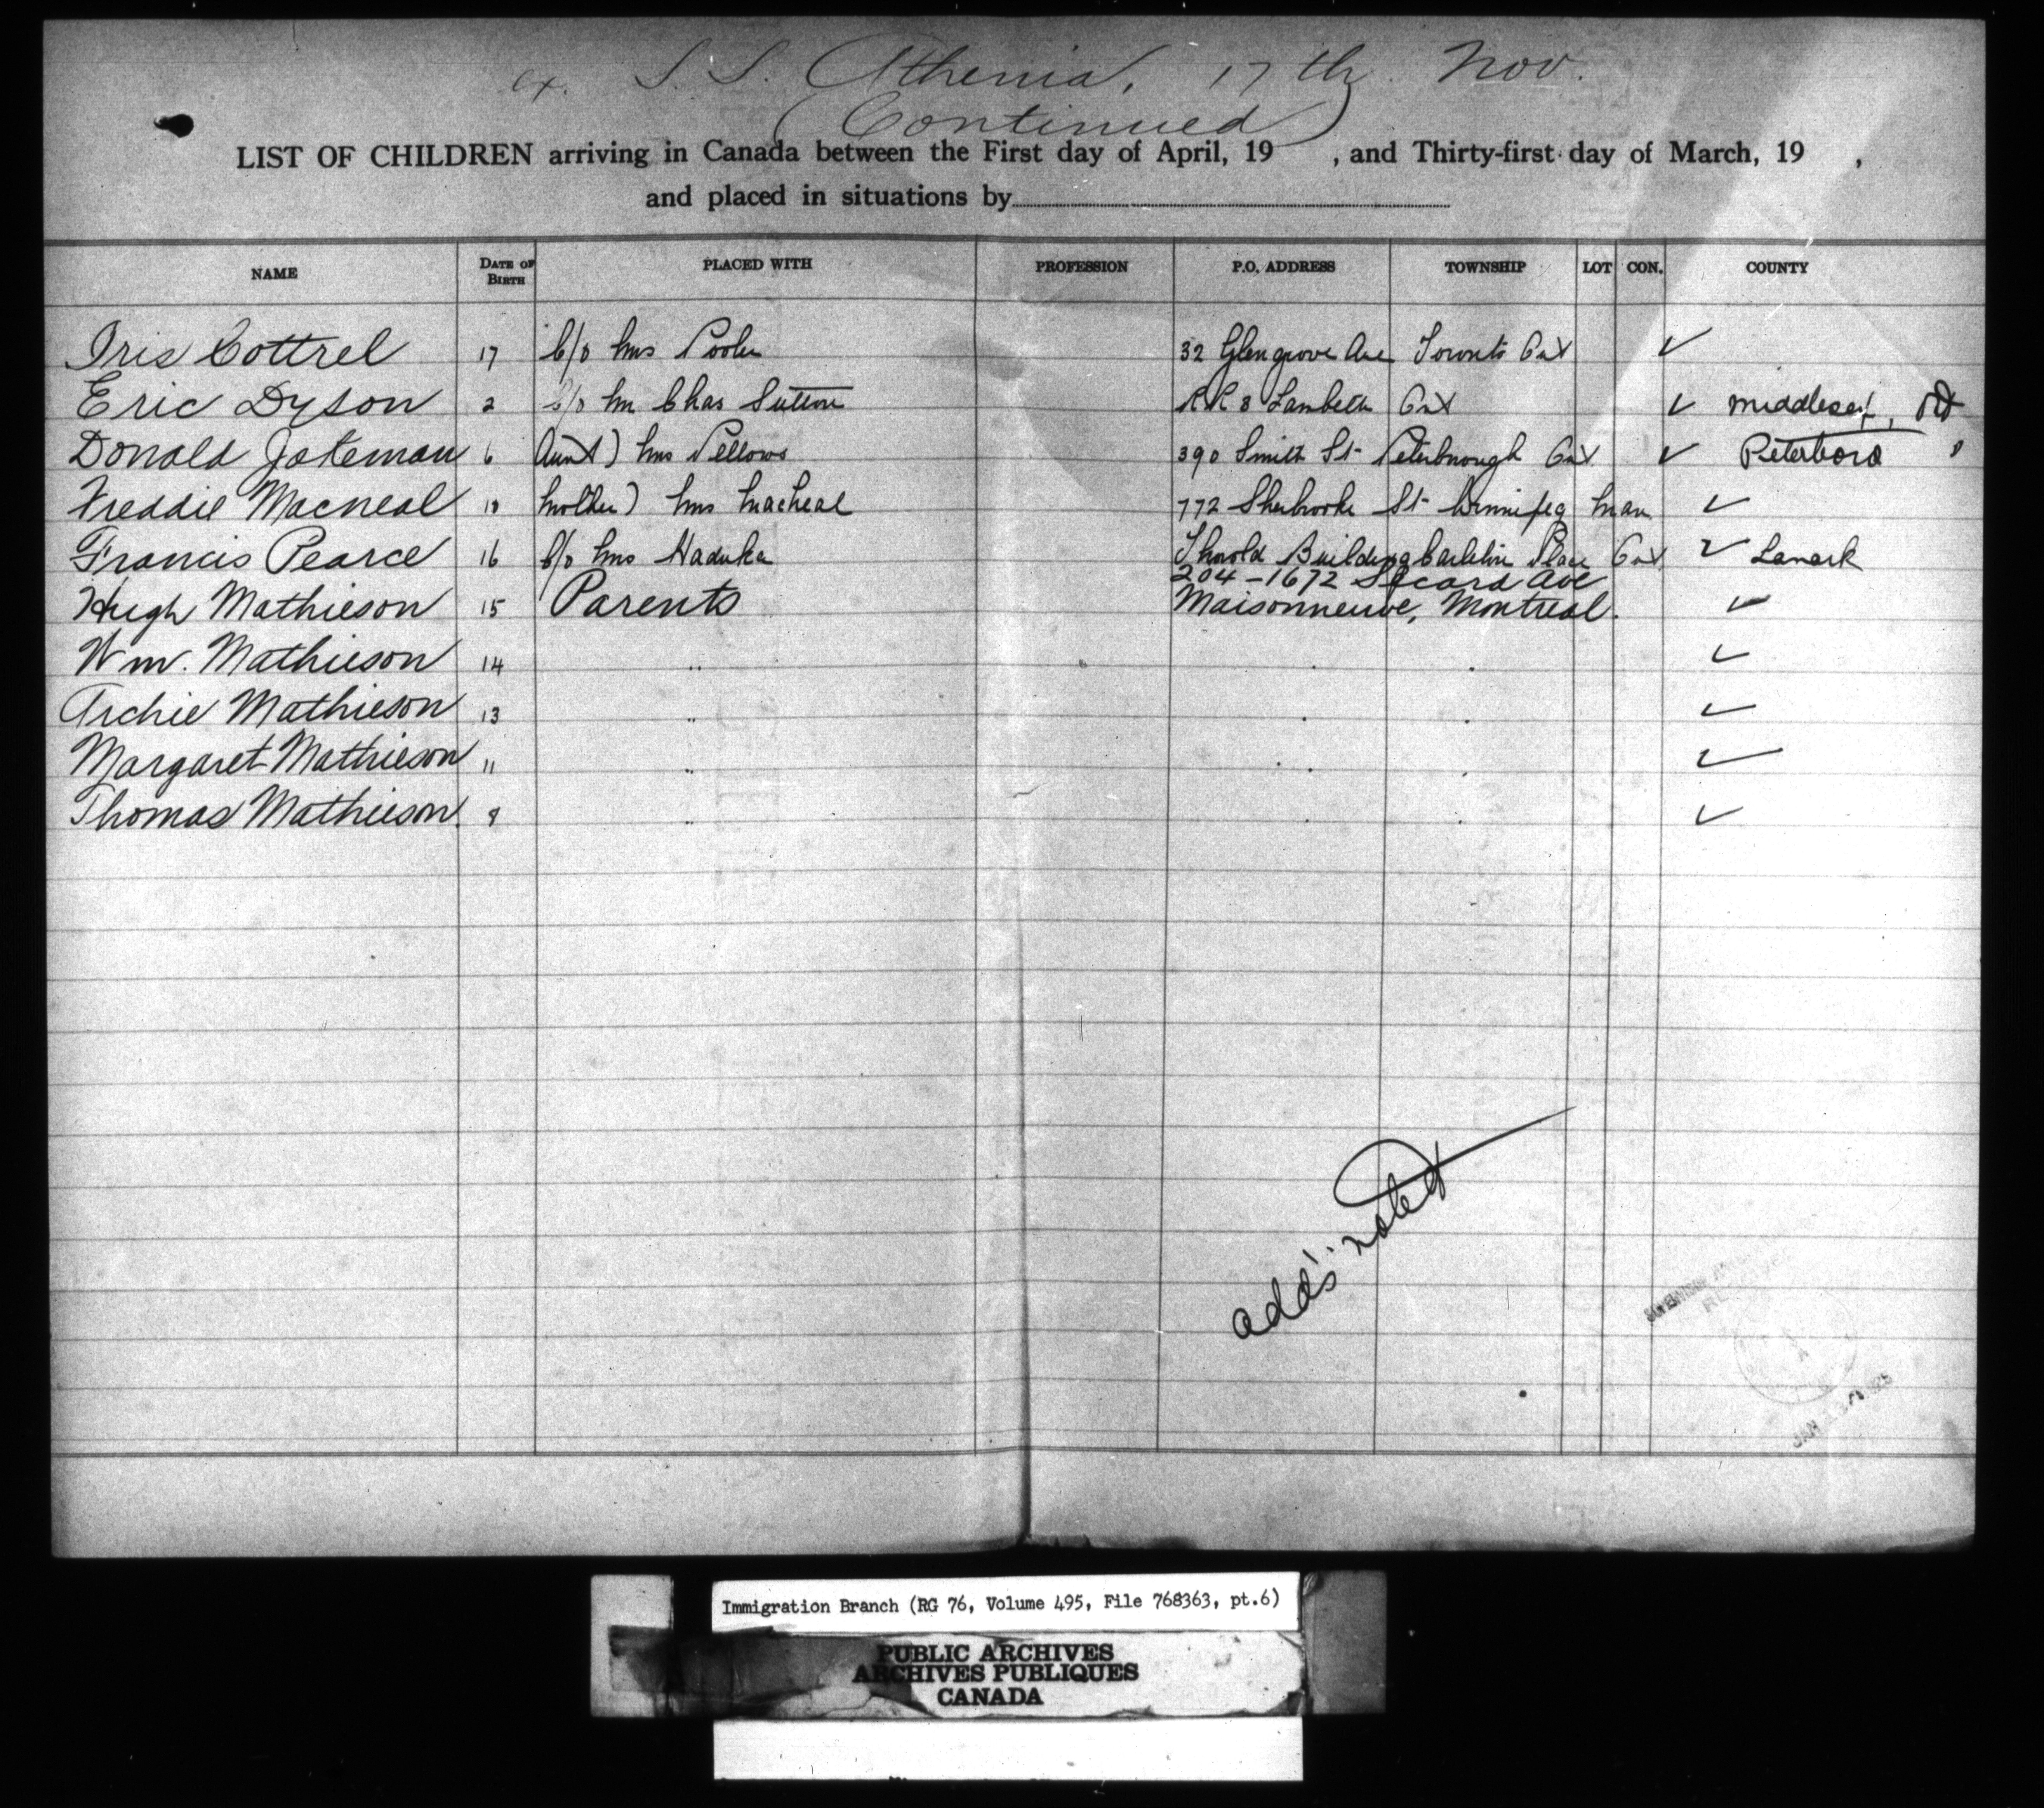 ex. S.S. Athenia, 17th Nov.
(Continued)
LIST OF CHILDREN arriving in Canada between the First day of April, 19 , and Thirty-first day of March, 19 ,
and placed in situations by
NAME DATE OF BIRTH PLACED WITH PROFESSION P.O. ADDRESS TOWNSHIP LOT CON. COUNTY
Iris Cottrel 17 c/o Mrs Pooler 32 Glengrove Ave Toronto Ont ✓
Eric Dyson 2 c/o Mr Chas Sutton RR 8 Lambeth Ont ✓ Middlesex, Ont
Donald Jateman 6 Aunt) Mrs Pellows 390 Smith St Peterborough Ont ✓ Peterboro "
Freddie Macneal 10 Mother) Mrs Macneal 772 Sherbrooke St Winnipeg Man ✓
Francis Pearce 16 c/o Mrs Building Carleton Place Ont ✓ Lanark
204-1672 Secord Ave
Hugh Mathieson 15 Parents Maisonneuve, Montreal. ✓
Wm. Mathieson 14 " " " ✓
Archie Mathieson 13 " " " ✓
Margaret Mathieson 11 " " " ✓
Thomas Mathieson. 8 " " " ✓
add's noted
JAN 1925
Immigration Branch (RG 76, Volume 495, File 768363, pt.6)
PUBLIC ARCHIVES
ARCHIVES PUBLIQUES
CANADA